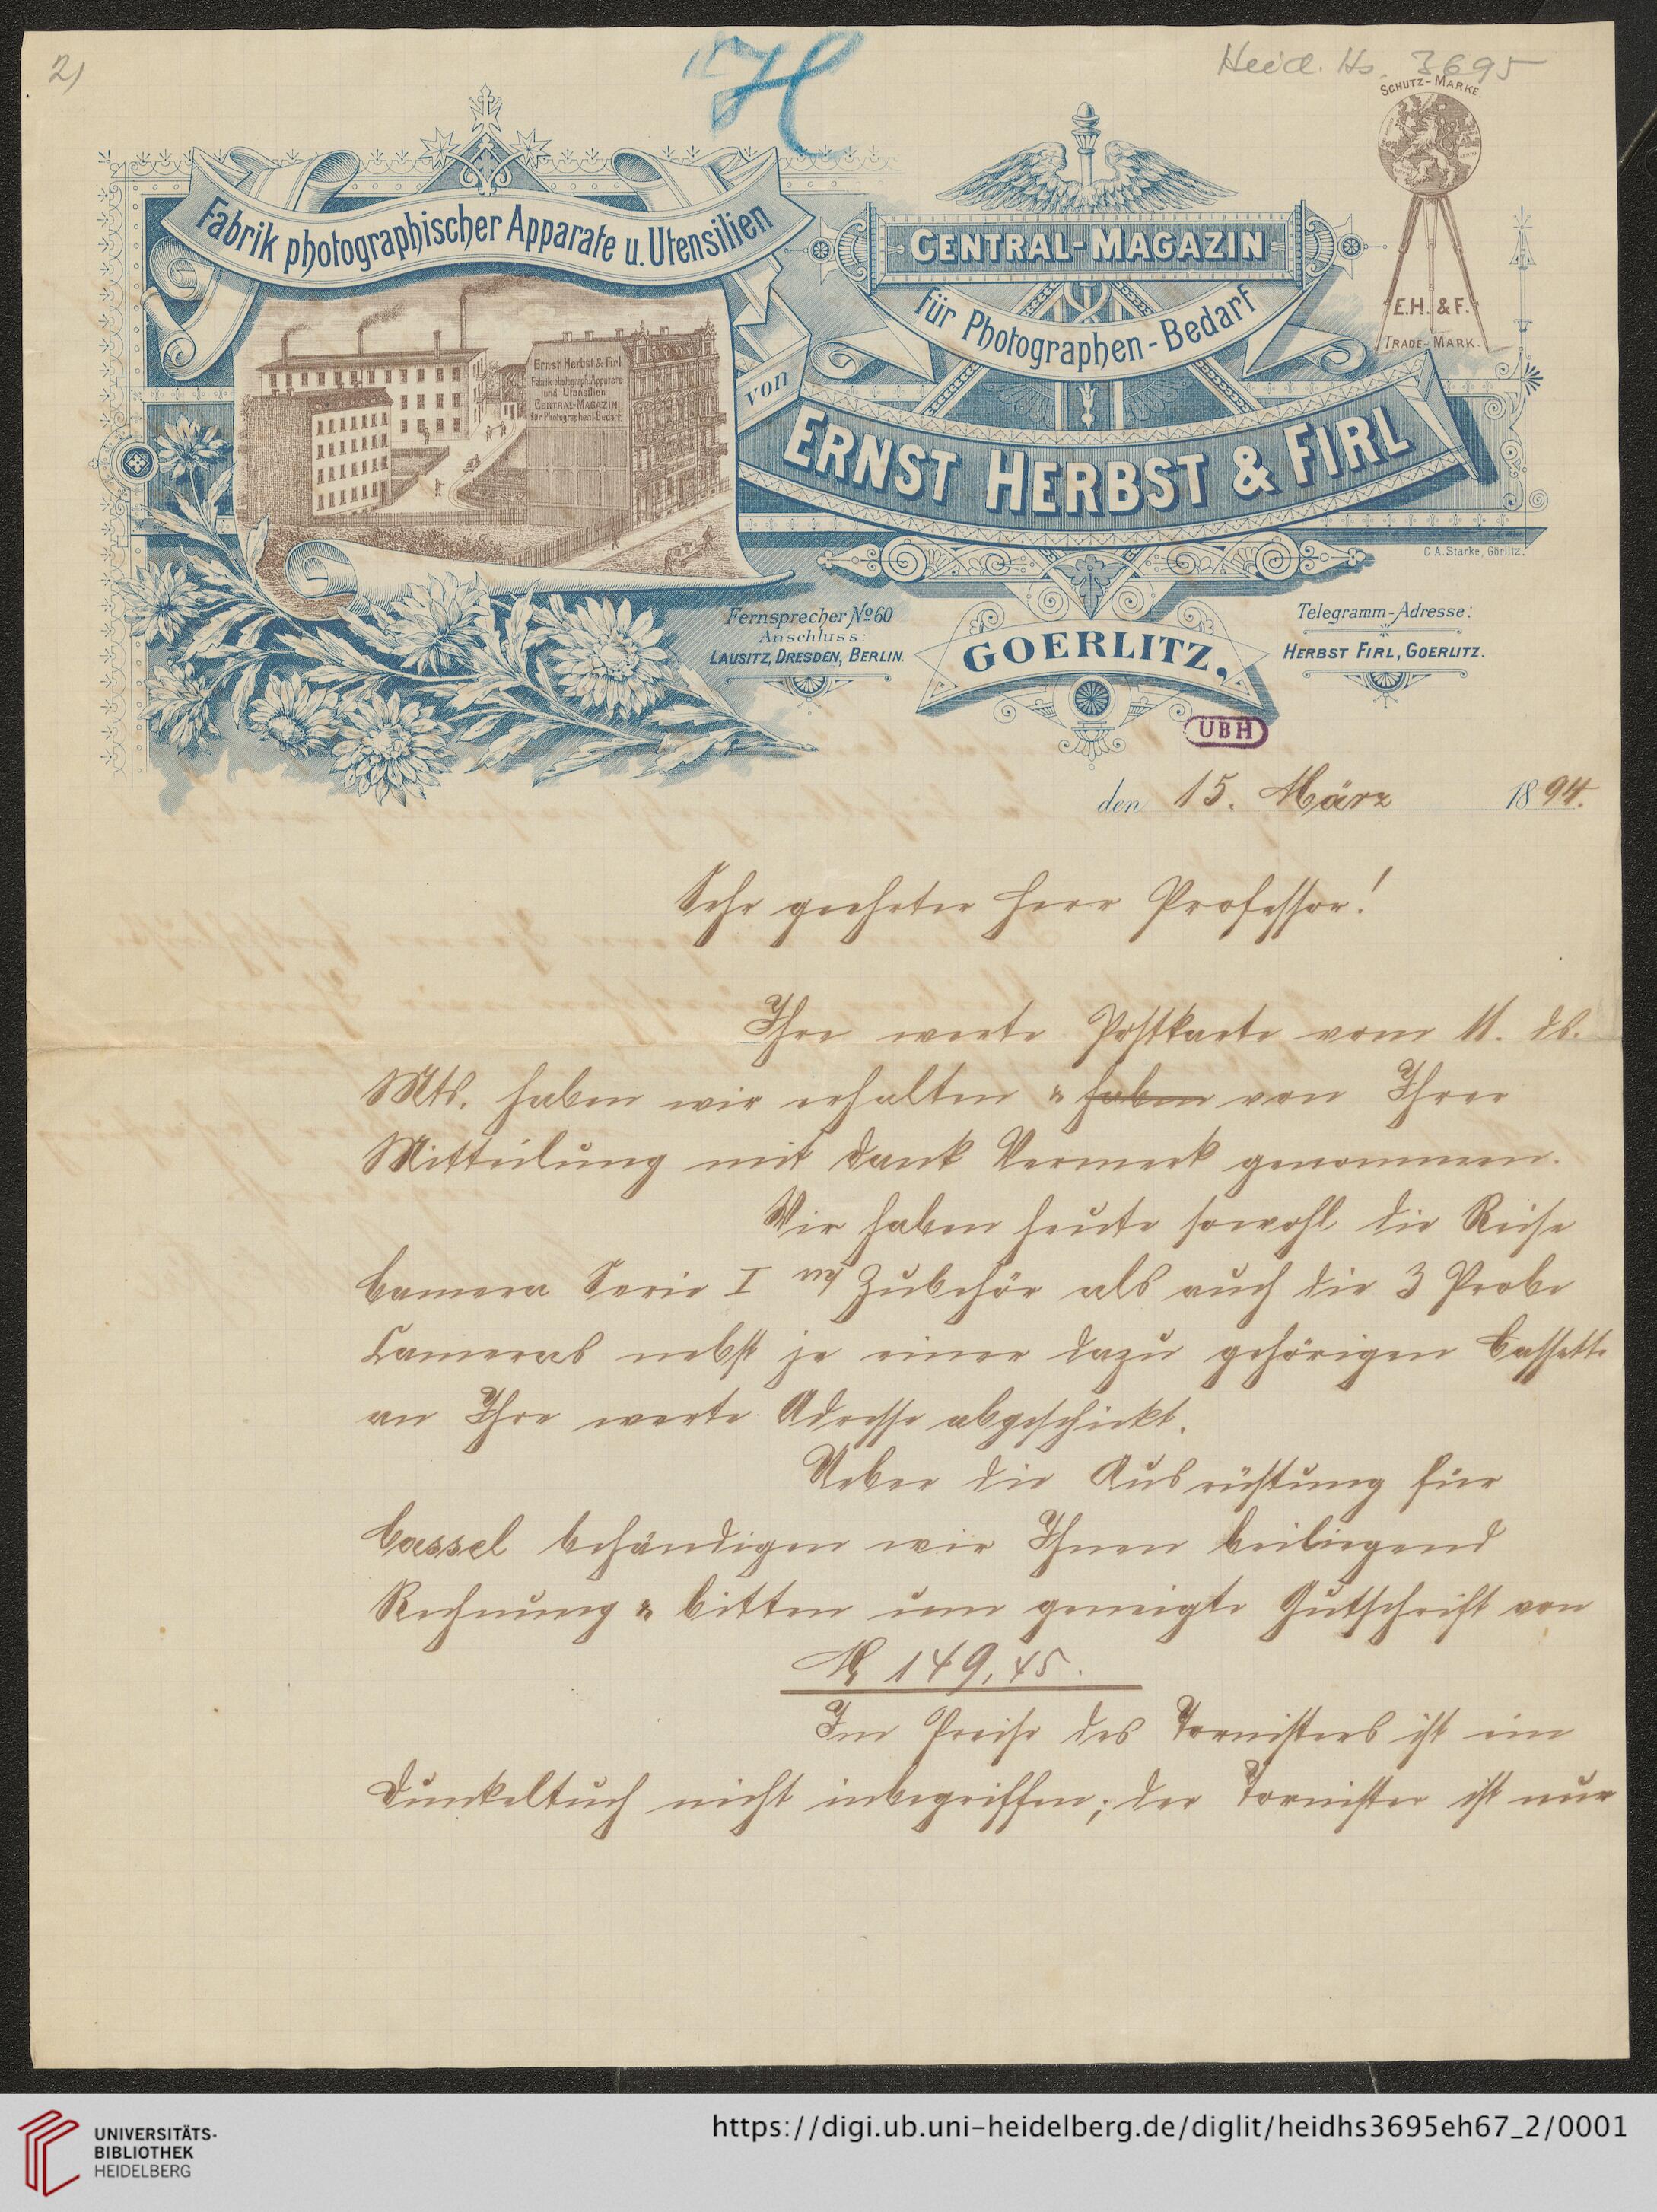 2)
H
Heid. Hs. 3695
SCHUTZ-MARKE.
E.H. & F.
TRADE-MARK.
Fabrik photographischer Apparate u. Utensilien
Ernst Herbst & Firl
Fabrik photograph. Apparate
und Utensilien
CENTRAL-MAGAZIN
für Photographen-Bedarf.
von
CENTRAL-MAGAZIN
für Photographen-Bedarf
ERNST HERBST & FIRL
C A. Starke, Görlitz.
Fernsprecher No 60
Anschluss:
LAUSITZ, DRESDEN, BERLIN.
GOERLITZ,
Telegramm-Adresse:
HERBST FIRL, GOERLITZ.
UBH
den 15. März 1894.
Sehr geehrter Herr Professor!
Ihre werte Postkarte vom 11. ds.
Mts. haben wir erhalten & haben von Ihrer
Mitteilung mit Dank Vermerk genommen.
Wir haben heute sowohl die Reise
Camera Serie I m/ Zubehör als auch die 3 Probe
Cameras nebst je einer dazu gehörigen Cassette
an Ihre werte Adresse abgeschickt.
Ueber die Ausrüstung für
Cassel behändigen wir Ihnen beiliegend
Rechnung & bitten um geneigte Gutschrift von
M 149,45.
Im Preise des Tornisters ist ein
Dunkeltuch nicht inbegriffen; der Tornister ist nur
UNIVERSITÄTS-
BIBLIOTHEK
HEIDELBERG
https://digi.ub.uni-heidelberg.de/diglit/heidhs3695eh67_2/0001